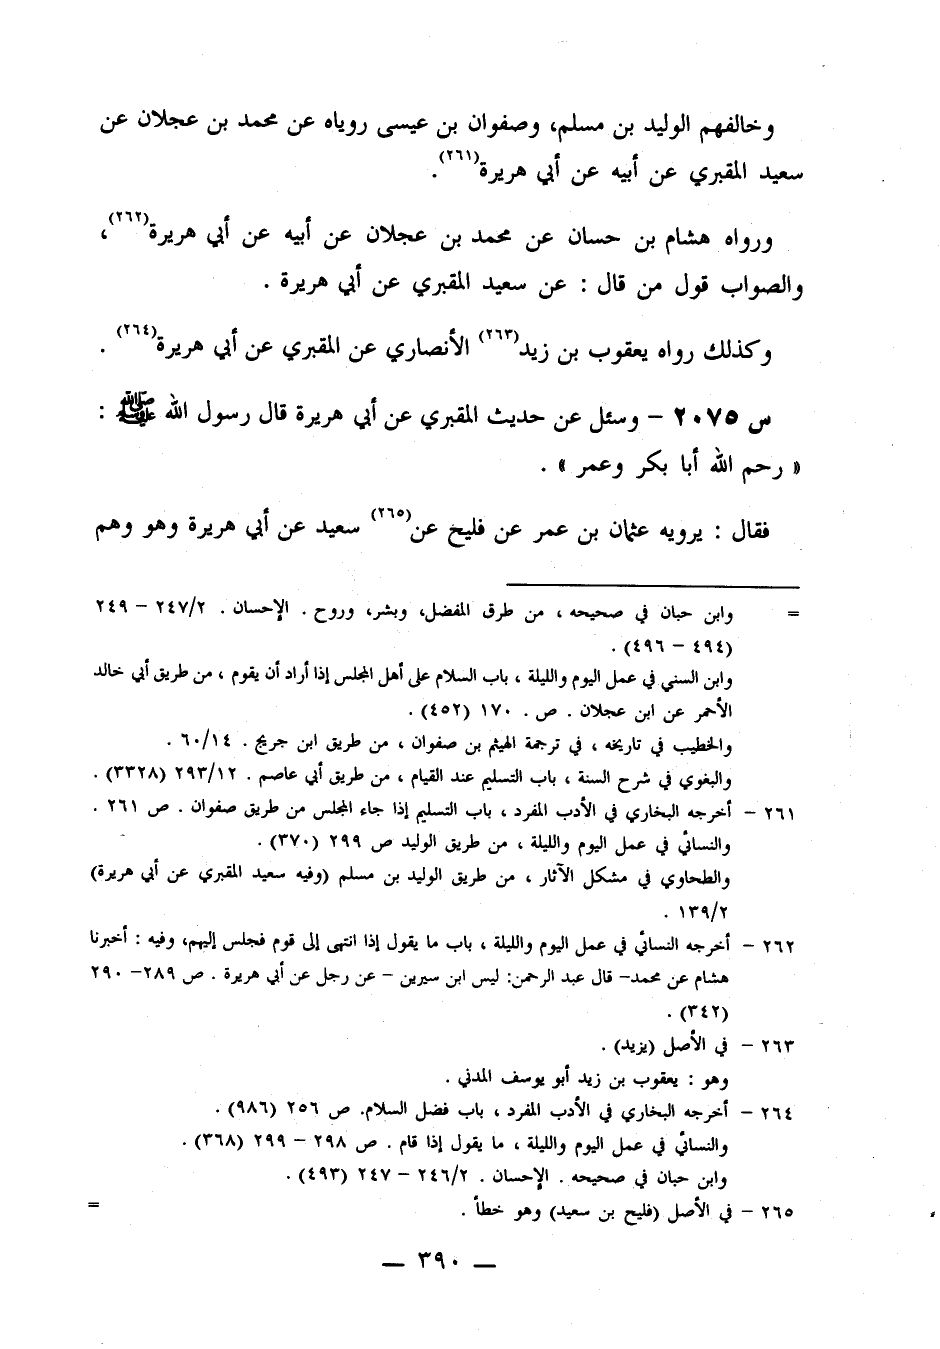 وخالفهم الوليد بن مسلم، وصفوان بن عيسى روياه عن محمد بن عجلان عن
سعيد المقبري عن أبيه عن أبي هريرة(٢٦١).
ورواه هشام بن حسان عن محمد بن عجلان عن أبيه عن أبي هريرة(٢٦٢)،
والصواب قول من قال : عن سعيد المقبري عن أبي هريرة .
وكذلك رواه يعقوب بن زيد(٢٦٣) الأنصاري عن المقبري عن أبي هريرة(٢٦٤) .
س ٢٠٧٥ – وسئل عن حديث المقبري عن أبي هريرة قال رسول الله ﷺ :
« رحم الله أبا بكر وعمر » .
فقال : يرويه عثمان بن عمر عن فليح عن(٢٦٥) سعيد عن أبي هريرة وهو وهم
= وابن حبان في صحيحه ، من طرق المفضل، وبشر، وروح . الإحسان . ٢٤٧/٢ – ٢٤٩
(٤٩٤ – ٤٩٦) .
وابن السني في عمل اليوم والليلة ، باب السلام على أهل المجلس إذا أراد أن يقوم ، من طريق أبي خالد
الأحمر عن ابن عجلان . ص . ١٧٠ (٤٥٢) .
والخطيب في تاريخه ، في ترجمة الهيثم بن صفوان ، من طريق ابن جريج . ٦٠/١٤ .
والبغوي في شرح السنة ، باب التسليم عند القيام ، من طريق أبي عاصم . ٢٩٣/١٢ (٣٣٢٨) .
٢٦١ – أخرجه البخاري في الأدب المفرد ، باب التسليم إذا جاء المجلس من طريق صفوان . ص ٢٦١ .
والنسائي في عمل اليوم والليلة ، من طريق الوليد ص ٢٩٩ (٣٧٠) .
والطحاوي في مشكل الآثار ، من طريق الوليد بن مسلم (وفيه سعيد المقبري عن أبي هريرة)
١٣٩/٢ .
٢٦٢ – أخرجه النسائي في عمل اليوم والليلة ، باب ما يقول إذا انتهى إلى قوم فجلس إليهم، وفيه : أخبرنا
هشام عن محمد– قال عبد الرحمن: ليس ابن سيرين – عن رجل عن أبي هريرة . ص ٢٨٩– ٢٩٠
(٣٤٢) .
٢٦٣ – في الأصل (يزيد) .
وهو : يعقوب بن زيد أبو يوسف المدني .
٢٦٤ – أخرجه البخاري في الأدب المفرد ، باب فضل السلام. ص ٢٥٦ (٩٨٦) .
والنسائي في عمل اليوم والليلة ، ما يقول إذا قام . ص ٢٩٨ – ٢٩٩ (٣٦٨) .
وابن حبان في صحيحه . الإحسان . ٢٤٦/٢ – ٢٤٧ (٤٩٣) .
٢٦٥ – في الأصل (فليح بن سعيد) وهو خطأ . =
— ٣٩٠ —